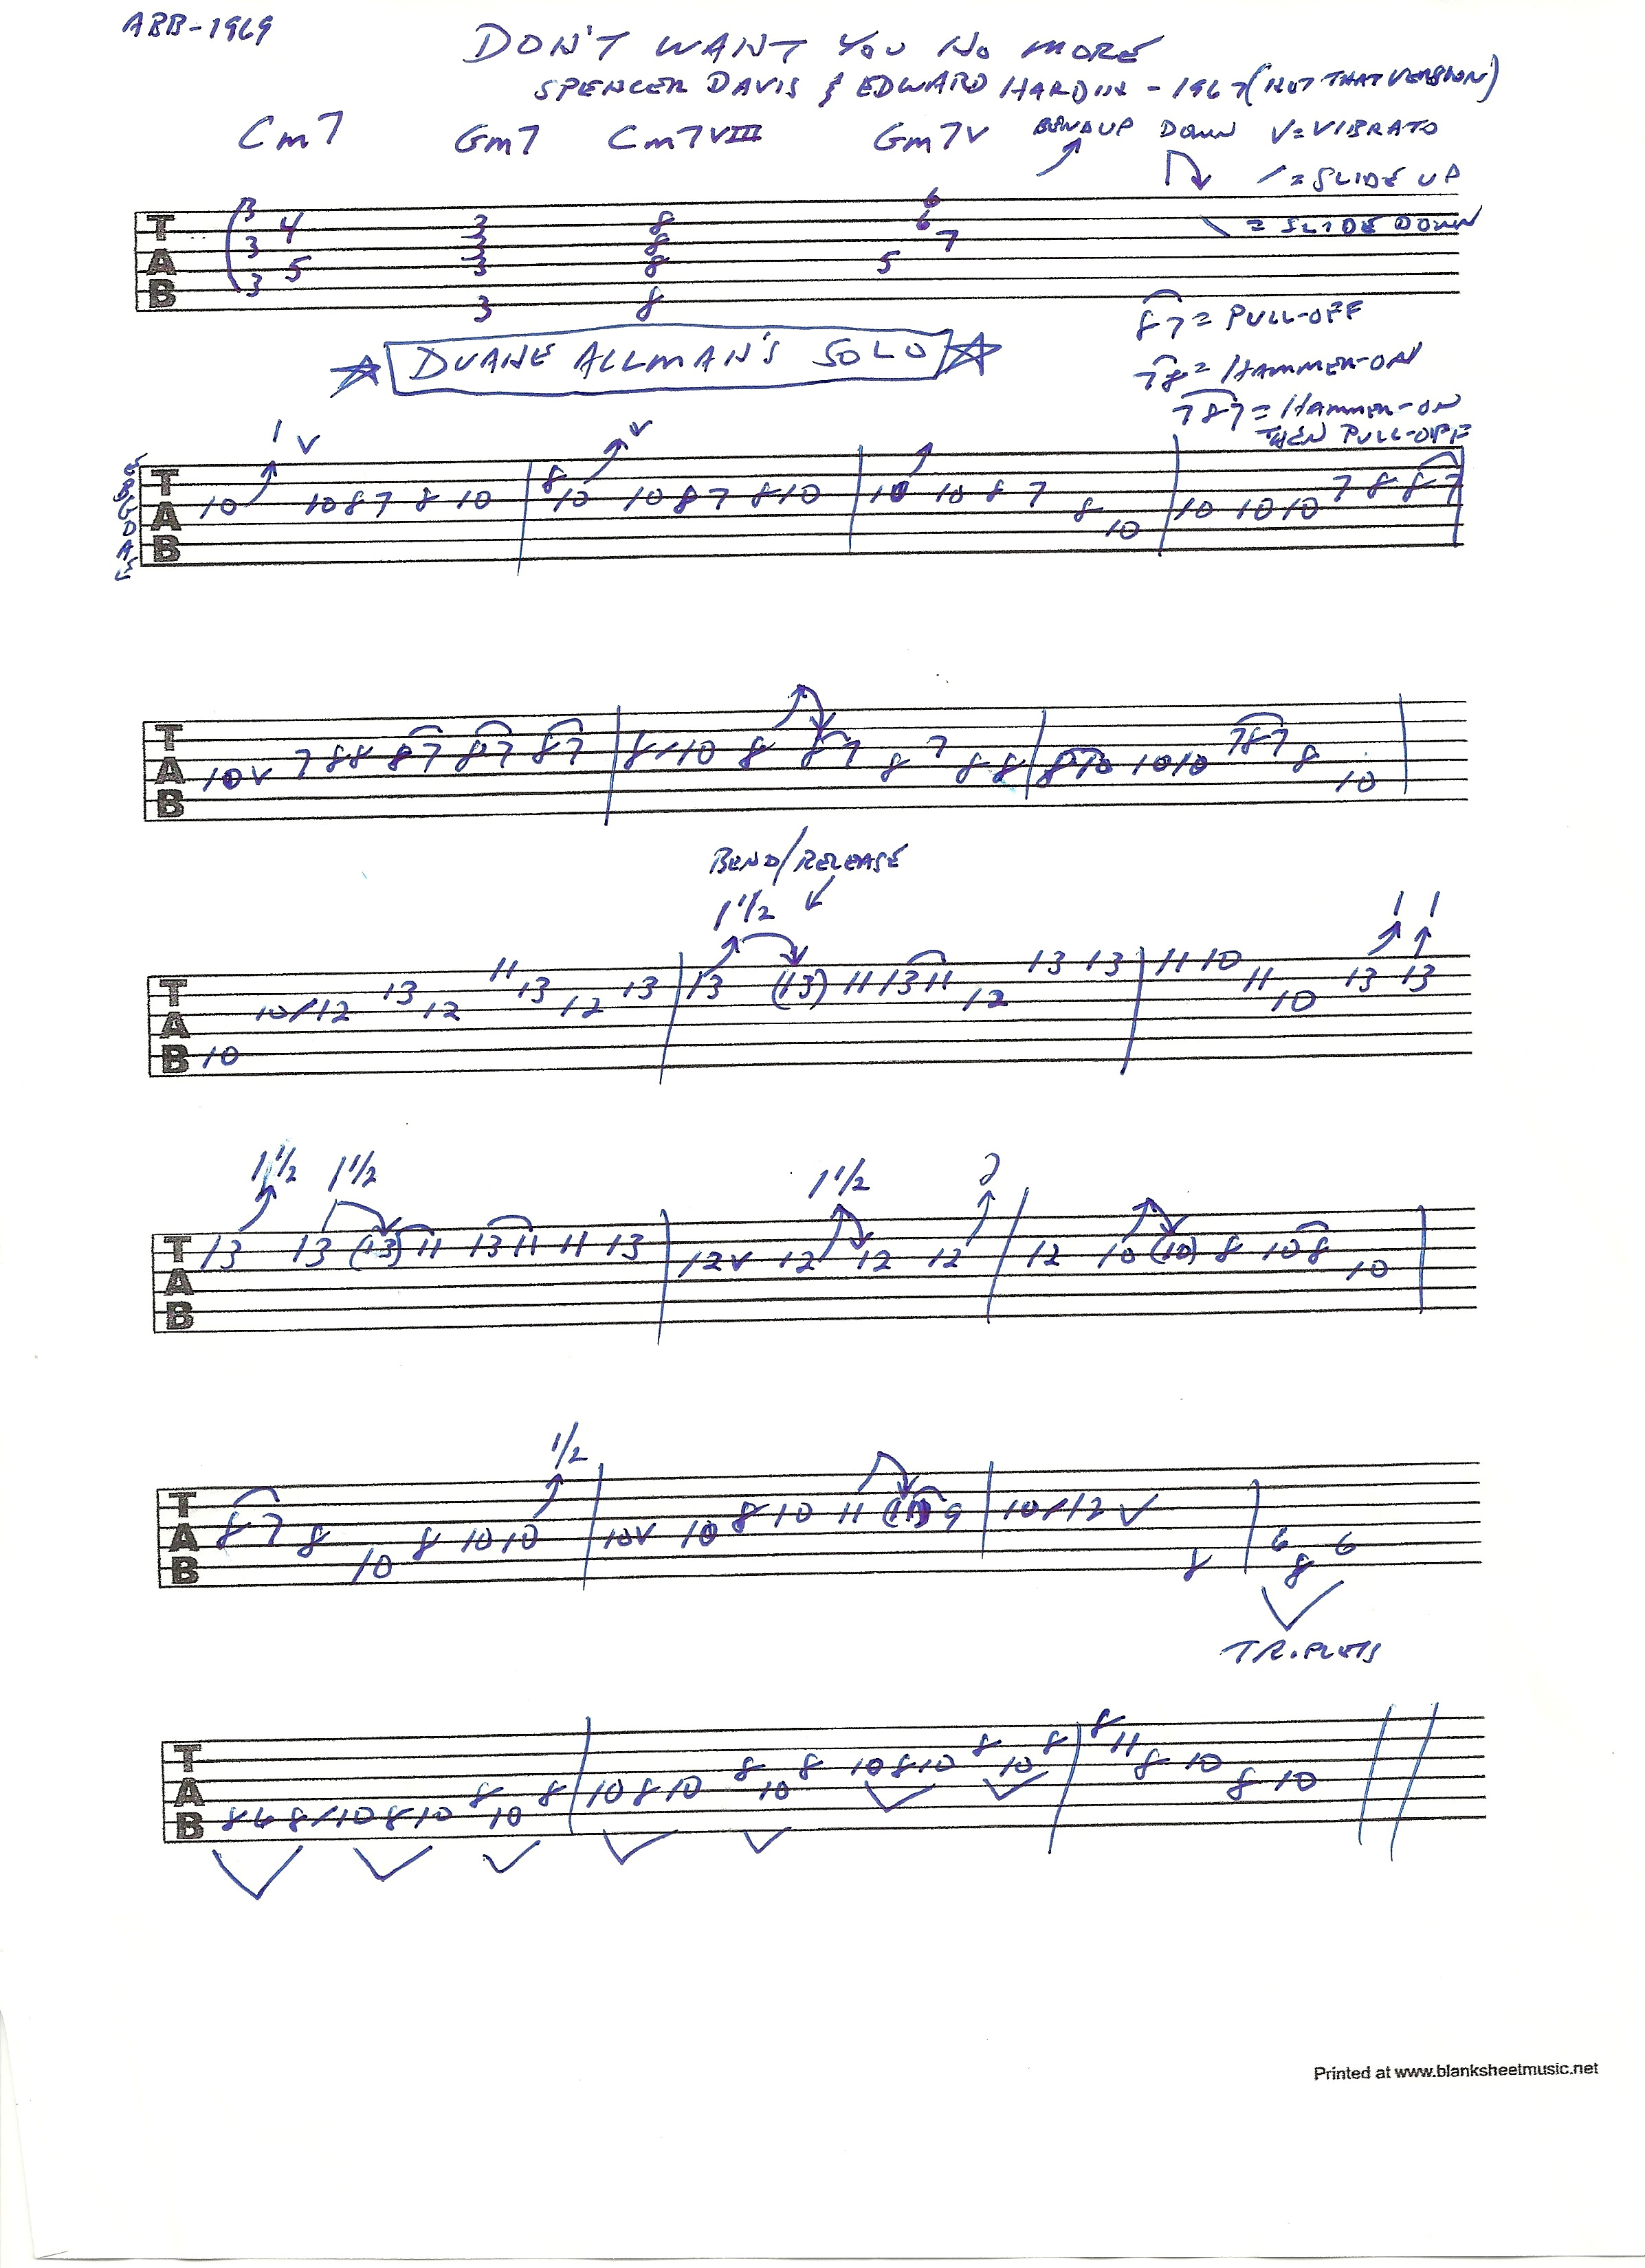 ABB-1969
DON'T WANT YOU NO MORE
SPENCER DAVIS & EDWARD HARDIN - 1967 (NOT THAT VERSION)
Cm7 Gm7 Cm7VIII Gm7V BEND UP DOWN V=VIBRATO
/ = SLIDE UP
\ = SLIDE DOWN
TAB
3 4 3 8 6
3 8 6
3 3 8 7
5 3 8 5
3
3 8
87 = PULL-OFF
DUANE ALLMAN'S SOLO
78 = HAMMER-ON
787 = HAMMER-ON
THEN PULL-OFF
1 V V
TAB 10 10 8 7 8 10 8 10 10 8 7 8 10 10 10 8 7 8 10 10 10 10 7 8 8 7
TAB 10 V 7 8 8 8 7 8 7 8 7 8/10 8 8 7 8 7 8 8 8 10 10 10 7 8 7 8 10
BEND/RELEASE
1 1/2 1 1
TAB 10 10/12 13 12 11 13 12 13 13 (13) 11 13 11 12 13 13 11 10 11 10 13 13
1 1/2 1 1/2 1 1/2 2
TAB 13 13 (13) 11 13 11 11 13 12 V 12 12 12 12 10 (10) 8 10 8 10
1/2
TAB 8 7 8 10 8 10 10 10 V 10 8 10 11 (11) 9 10/12 V 8 6 8 6
TRIPLETS
TAB 8 6 8/10 8 10 8 10 8 10 8 10 8 10 8 10 8 10 8 10 8 8 11 8 10 8 10
Printed at www.blanksheetmusic.net